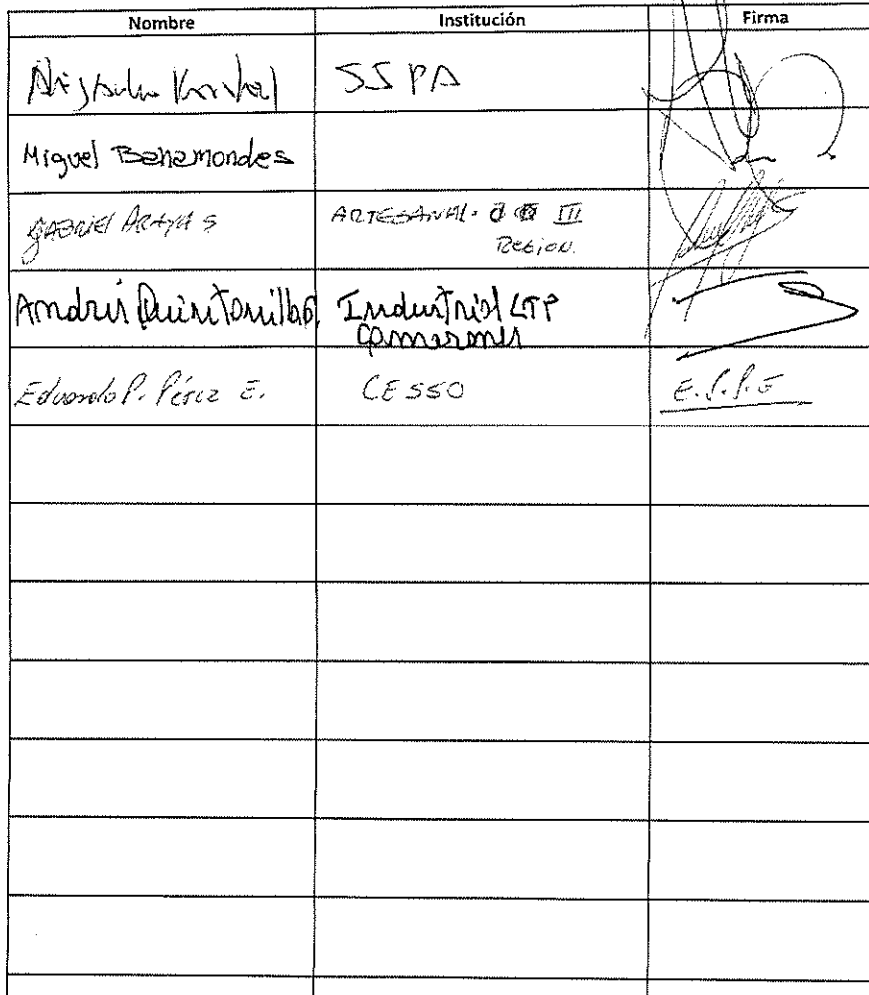 Nombre Institución Firma
SSPA
Miguel Bahamondes
GABRIEL ARAYA S ARTESANAL - III
REGION.
Andrés Quintanilla Industrial LTP
Camarones
Eduardo P. Pérez E. CESSO E.P.P.E